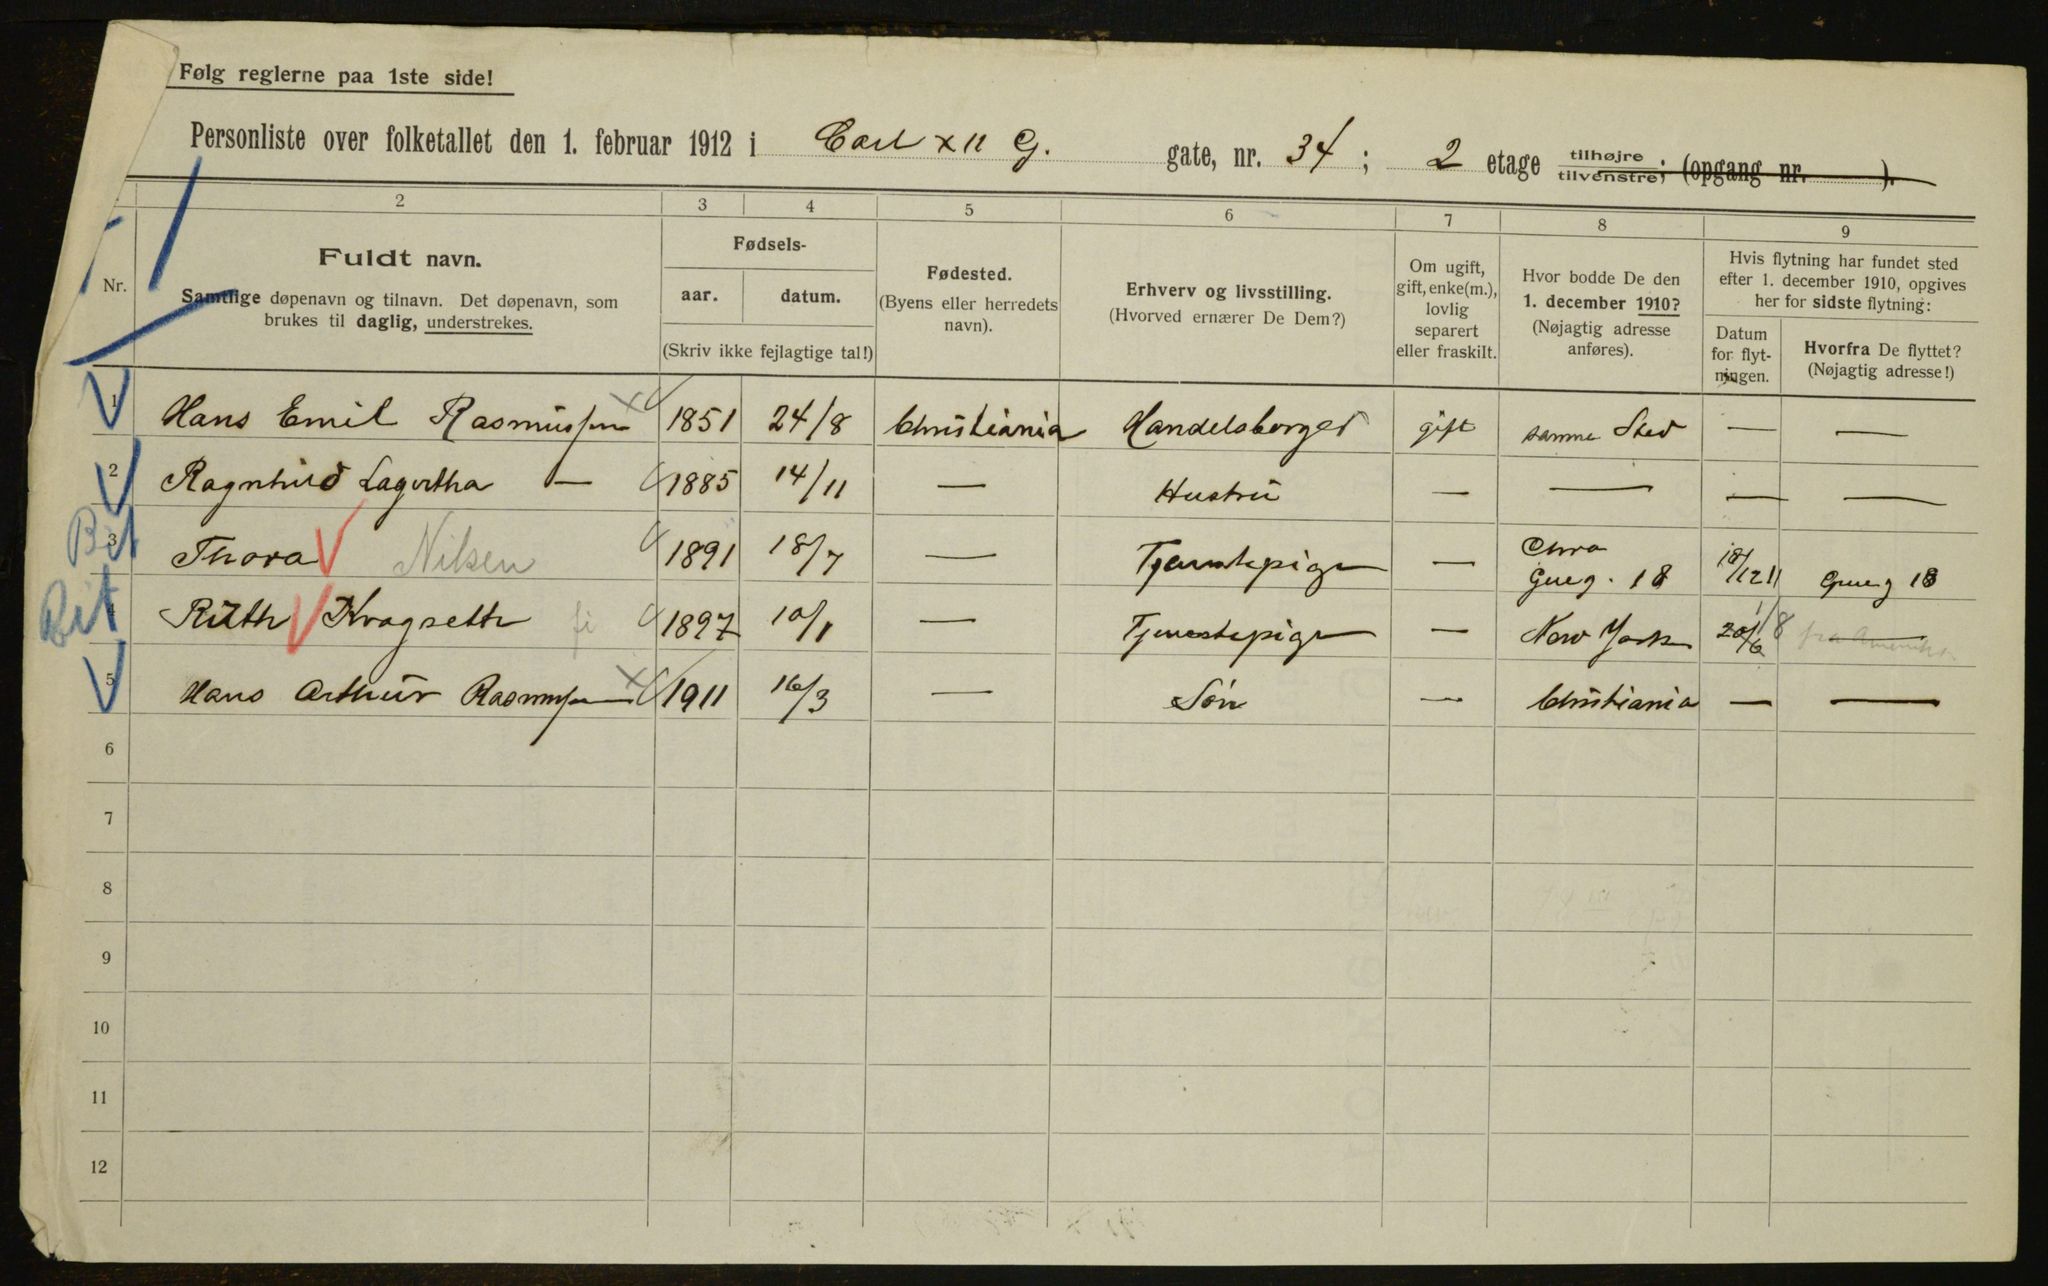 Følg reglerne paa 1ste side!
Personliste over folketallet den 1. februar 1912 i Carl XII G. gate, nr. 34; 2 etage tilhøjre tilvenstre; (opgang nr. ).
2 3 4 5 6 7 8 9
Nr.
Fuldt navn.
Samtlige døpenavn og tilnavn. Det døpenavn, som
brukes til daglig, understrekes.
Fødsels-
aar. datum.
(Skriv ikke fejlagtige tal!)
Fødested.
(Byens eller herredets
navn).
Erhverv og livsstilling.
(Hvorved ernærer De Dem?)
Om ugift,
gift, enke(m.),
lovlig
separert
eller fraskilt.
Hvor bodde De den
1. december 1910?
(Nøjagtig adresse
anføres).
Hvis flytning har fundet sted
efter 1. december 1910, opgives
her for sidste flytning:
Datum
for flyt-
ningen.
Hvorfra De flyttet?
(Nøjagtig adresse!)
1 Hans Emil Rasmussen 1851 24/8 Christiania Handelsborger gift samme Sted — —
2 Ragnhild Lagertha — 1885 14/11 — Hustru — — — —
Bet 3 Thora Nilsen 1891 18/7 — Tjenestepige — Chra Grueg. 18 18/12 11 Grueg 18
Bet 4 Ruth Kragseth 1897 10/1 — Tjenestepige — New York 20/6 fra Amerika
5 Hans Arthur Rasmussen 1911 16/3 — Søn — Christiania — —
6
7
8
9
10
11
12